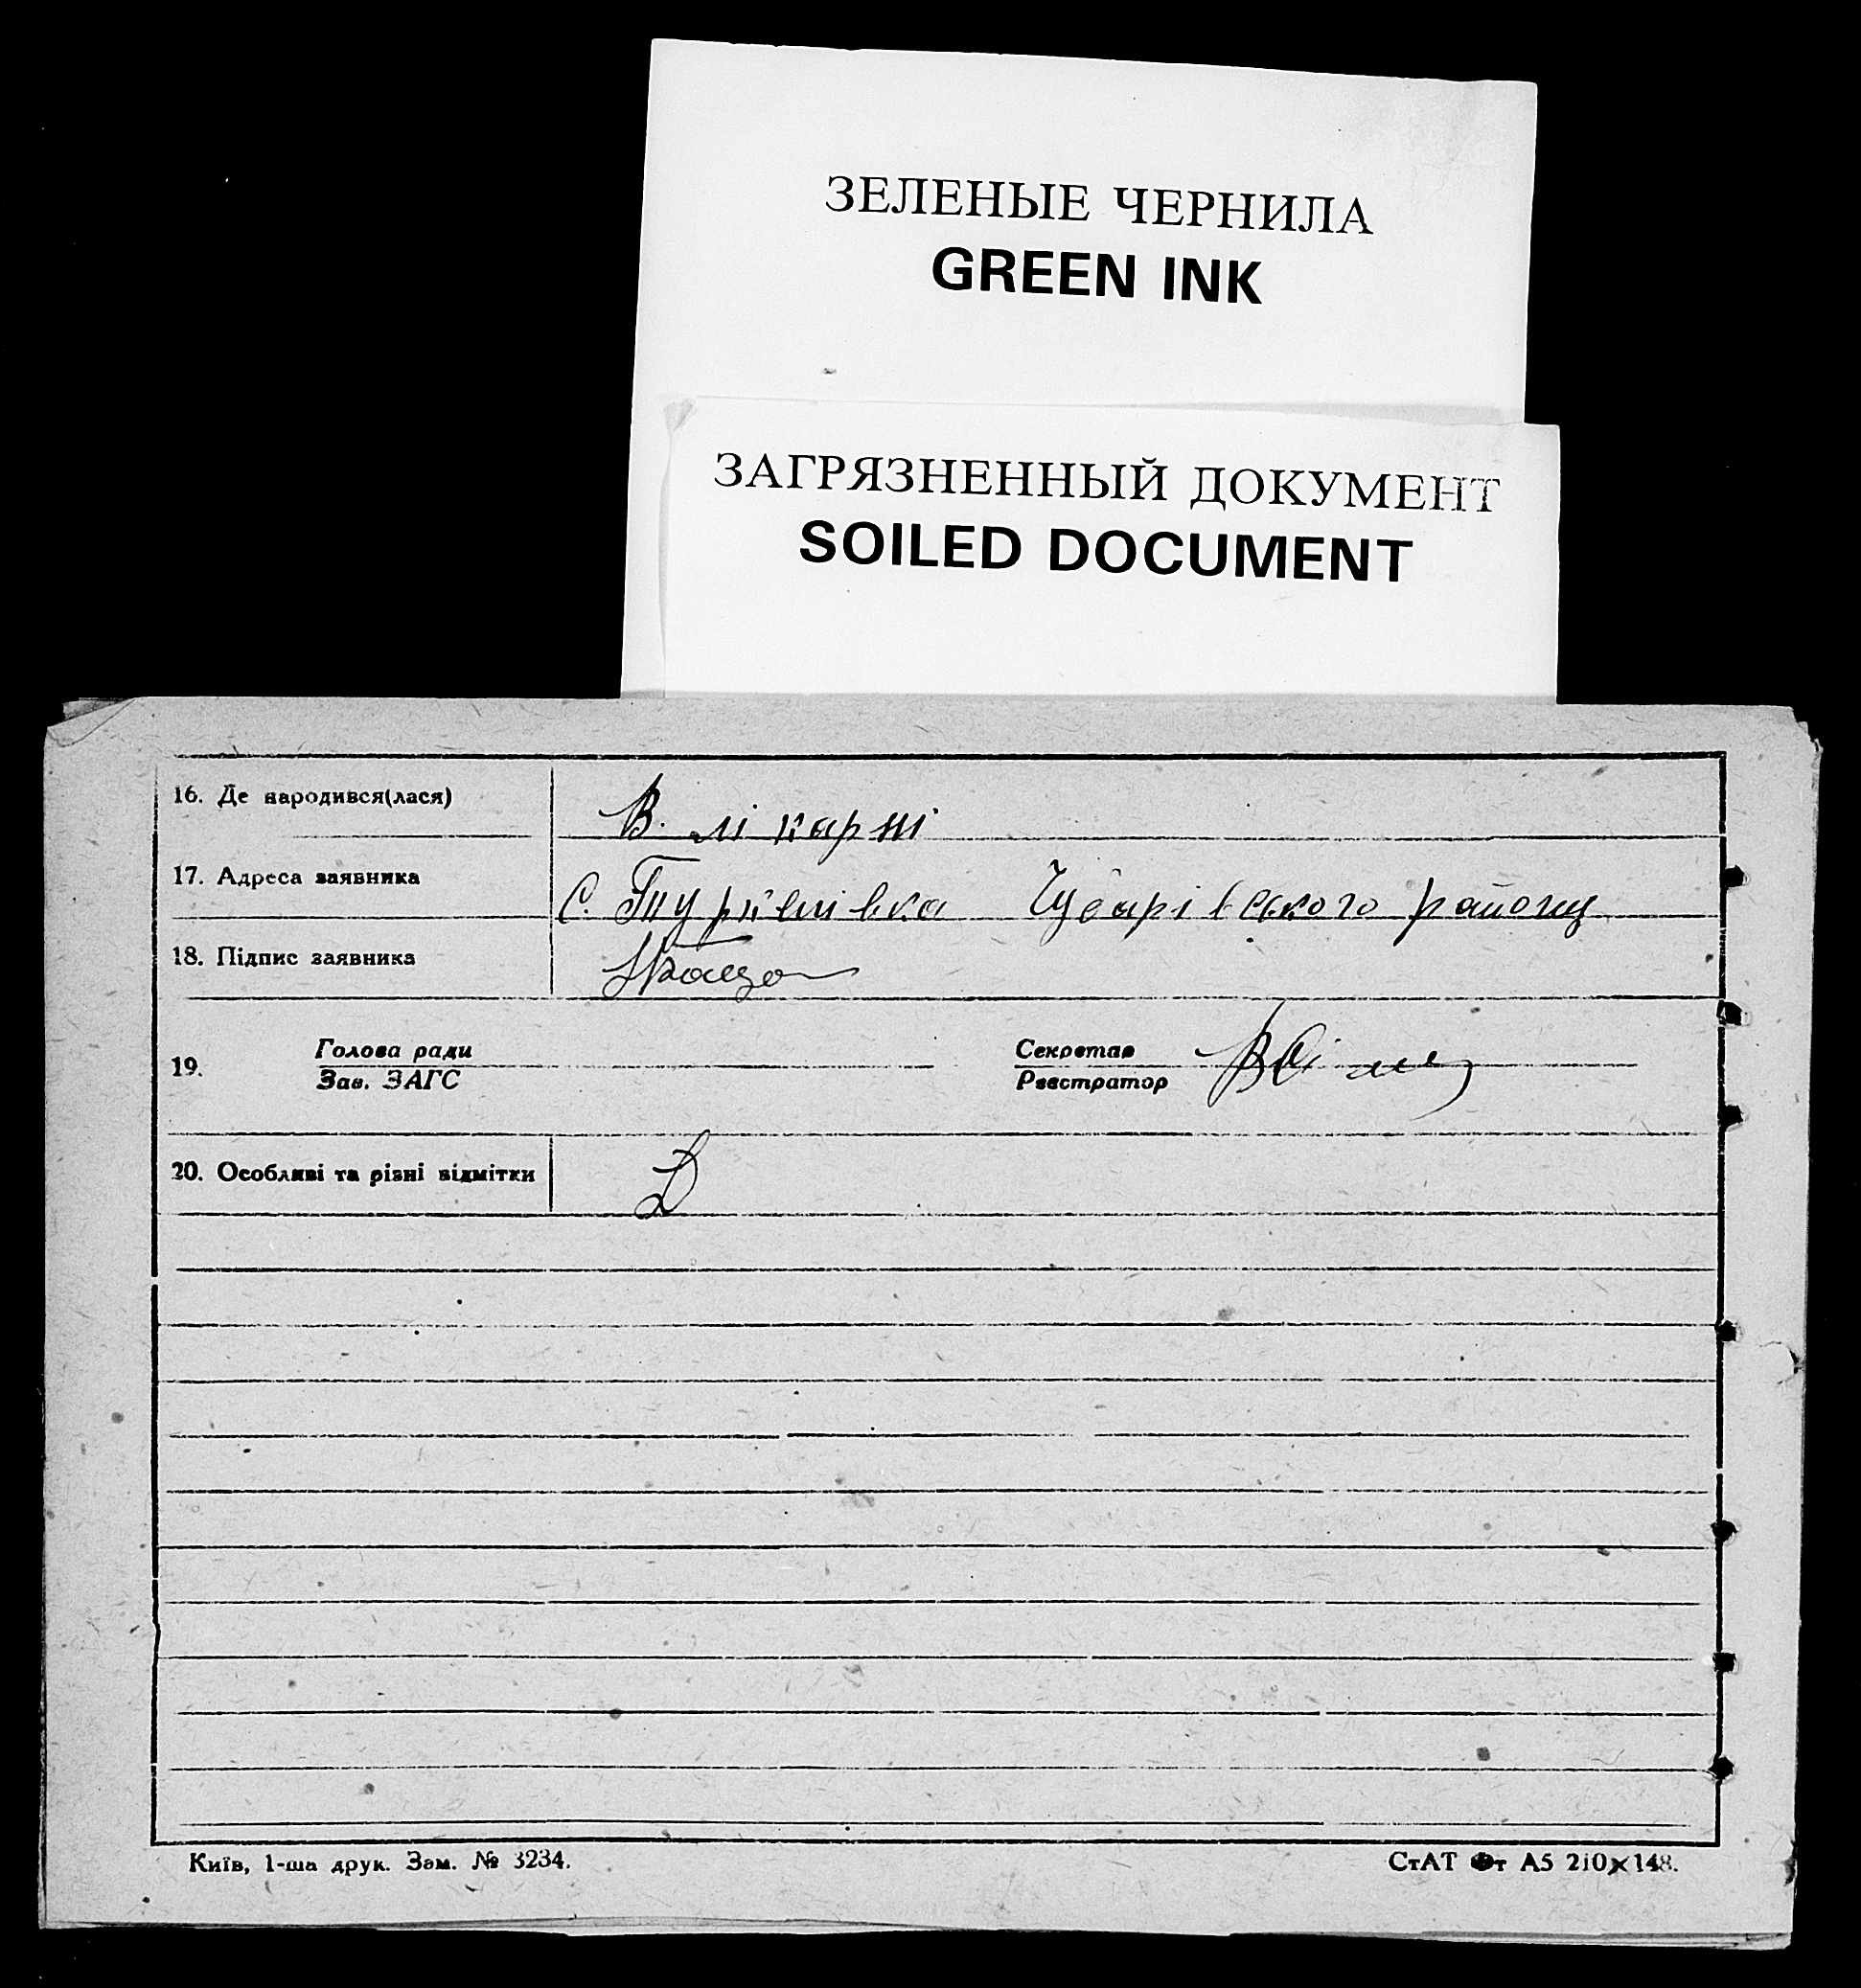 ЗЕЛЕНЫЕ ЧЕРНИЛА
GREEN INK
ЗАГРЯЗНЕННЫЙ ДОКУМЕНТ
SOILED DOCUMENT
16. Де народився(лася) В лікарні
17. Адреса заявника С. Туркенівка Чубарівського району
18. Підпис заявника
19. Голова ради Секретар
Зав. ЗАГС Реєстратор
20. Особливі та різні відмітки
Київ, 1-ша друк. Зам. № 3234.
СтАТ Фт А5 210×148.